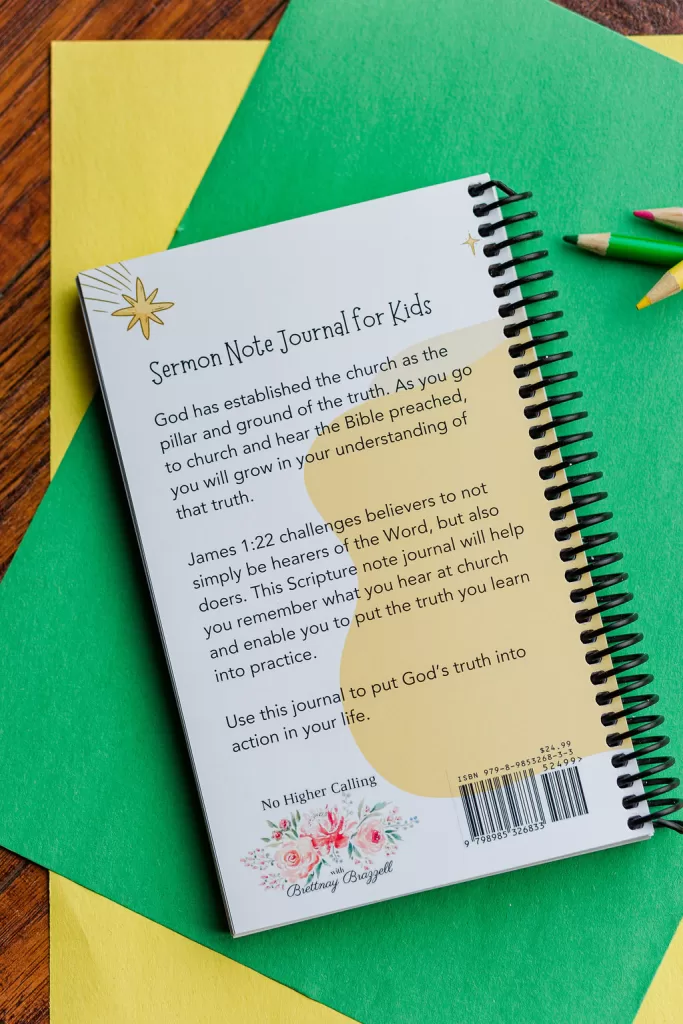 Sermon Note Journal for Kids
God has established the church as the
pillar and ground of the truth. As you go
to church and hear the Bible preached,
you will grow in your understanding of
that truth.
James 1:22 challenges believers to not
simply be hearers of the Word, but also
doers. This Scripture note journal will help
you remember what you hear at church
and enable you to put the truth you learn
into practice.
Use this journal to put God's truth into
action in your life.
No Higher Calling
with
Brettnay Brazzell
$24.99
ISBN 979-8-9853268-3-3
52499>
9 798985 326833